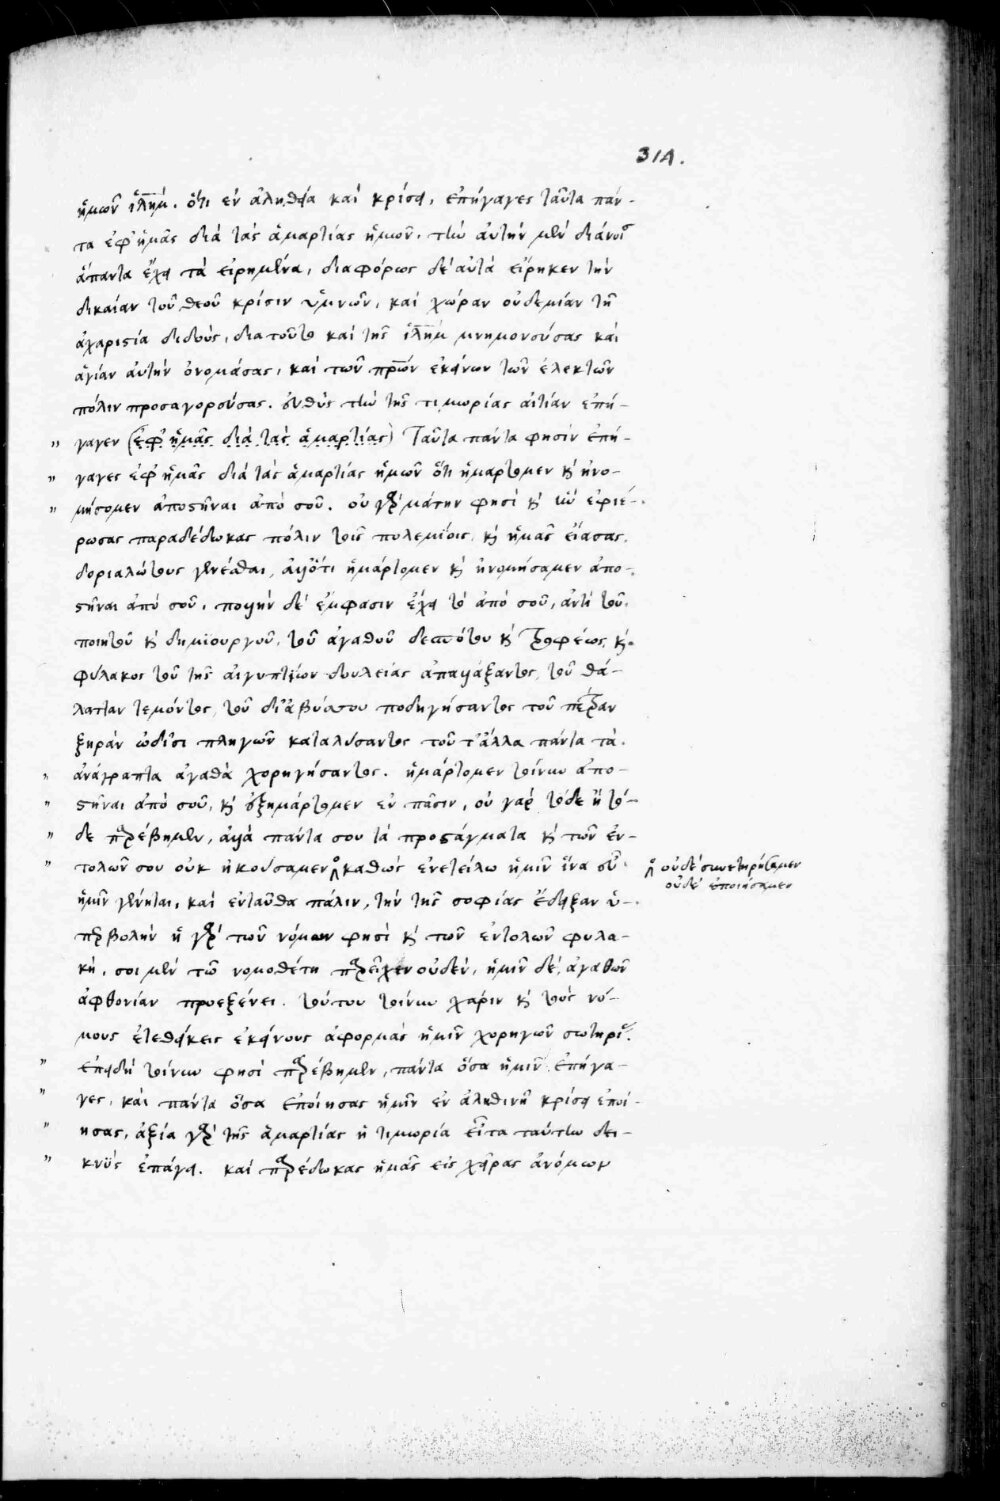 314.
ἡμῶν ἰλῆμ. ὅτι ἐν ἀληθεία καὶ κρίσει, ἐπήγαγες ταῦτα πάν-
τα ἐφ' ἡμᾶς διὰ τὰς ἁμαρτίας ἡμῶν. τὴν αὐτὴν μὲν διάνοι
ἅπαντα ἔχει τὰ εἰρημένα, διαφόρως δὲ αὐτὰ εἴρηκεν τὴν
δικαίαν τοῦ θεοῦ κρίσιν ὑμνῶν, καὶ χώραν οὐδεμίαν τῆ
ἀχαριστία διδοὺς, διατοῦτο καὶ τῆς ἰλῆμ μνημονεύσας καὶ
ἁγίαν αὐτὴν ὀνομάσας, καὶ τῶν πρῶν ἐκείνων τῶν ἐλεκτῶν
πόλιν προσαγορεύσας. εὐθὺς τὴν τῆς τιμωρίας αἰτίαν ἐπή-
" γαγεν (ἐφ' ἡμᾶς διὰ τὰς ἁμαρτίας) Ταῦτα πάντα φησὶν ἐπή-
" γαγες ἐφ' ἡμᾶς διὰ τὰς ἁμαρτίας ἡμῶν ὅτι ἡμάρτομεν κὶ ἠνο-
" μήσομεν ἀποστῆναι ἀπὸ σοῦ. οὐ γὰρ μάτην φησὶ κὶ τὴν ἐφιέ-
ρωσας παραδέδωκας πόλιν τοῖς πολεμίοις, κὶ ἡμᾶς εἴασας
δοριαλώτους γενέσθαι, ἀλλ' ὅτι ἡμάρτομεν κὶ ἠνομήσαμεν ἀπο-
στῆναι ἀπὸ σοῦ. πολλὴν δὲ ἔμφασιν ἔχει τὸ ἀπὸ σοῦ, ἀντὶ τοῦ
ποιητοῦ κὶ δημιουργοῦ, τοῦ ἀγαθοῦ δεσπότου κὶ τροφέως, κὶ
φύλακος τοῦ τῆς αἰγυπτίων δουλείας ἀπαλλάξαντος, τοῦ θά-
λατταν τεμόντος, τοῦ δι' ἀβύσσου ποδηγήσαντος τοῦ πέτραν
ξηρὰν ὠδῖσι πηγῶν καταλύσαντος τοῦ τ' ἄλλα πάντα τὰ
" ἀνάγραπτα ἀγαθὰ χορηγήσαντος. ἡμάρτομεν τοίνυν ἀπο-
" στῆναι ἀπὸ σοῦ, κὶ ἐξημάρτομεν ἐν πᾶσιν, οὐ γὰρ τόδε ἢ τό-
" δε παρέβημεν, ἀλλὰ πάντα σου τὰ προστάγματα κὶ τῶν ἐν-
" τολῶν σου οὐκ ἠκούσαμεν καθὼς ἐνετείλω ἡμῖν ἵνα εὖ
οὐδὲ συνετηρήσαμεν
οὐδὲ ἐποιήσαμεν
ἡμῖν γένηται, καὶ ἐνταῦθα πάλιν, τὴν τῆς σοφίας ἔδειξαν ὑ-
περβολὴν ἡ γὰρ τῶν νόμων φησὶ κὶ τῶν ἐντολῶν φυλα-
κὴ, σοι μὲν τῶ νομοθέτη παρεῖχεν οὐδὲν, ἡμῖν δὲ, ἀγαθῶν
ἀφθονίαν προεξένει. τούτου τοίνυν χάριν κὶ τοὺς νό-
μους ἐτεθείκεις ἐκείνους ἀφορμὰς ἡμῖν χορηγῶν σωτηρί.
" ἐπειδὴ τοίνυν φησὶ παρέβημεν, πάντα ὅσα ἡμῖν ἐπήγα-
" γες, καὶ πάντα ὅσα ἐποίησας ἡμῖν ἐν ἀληθινῆ κρίσει ἐποί-
" ησας, ἀξία γὰρ τῆς ἁμαρτίας ἡ τιμωρία εἶτα ταύτην δει-
" κνὺς ἐπάγει. καὶ παρέδωκας ἡμᾶς εἰς χεῖρας ἀνόμων